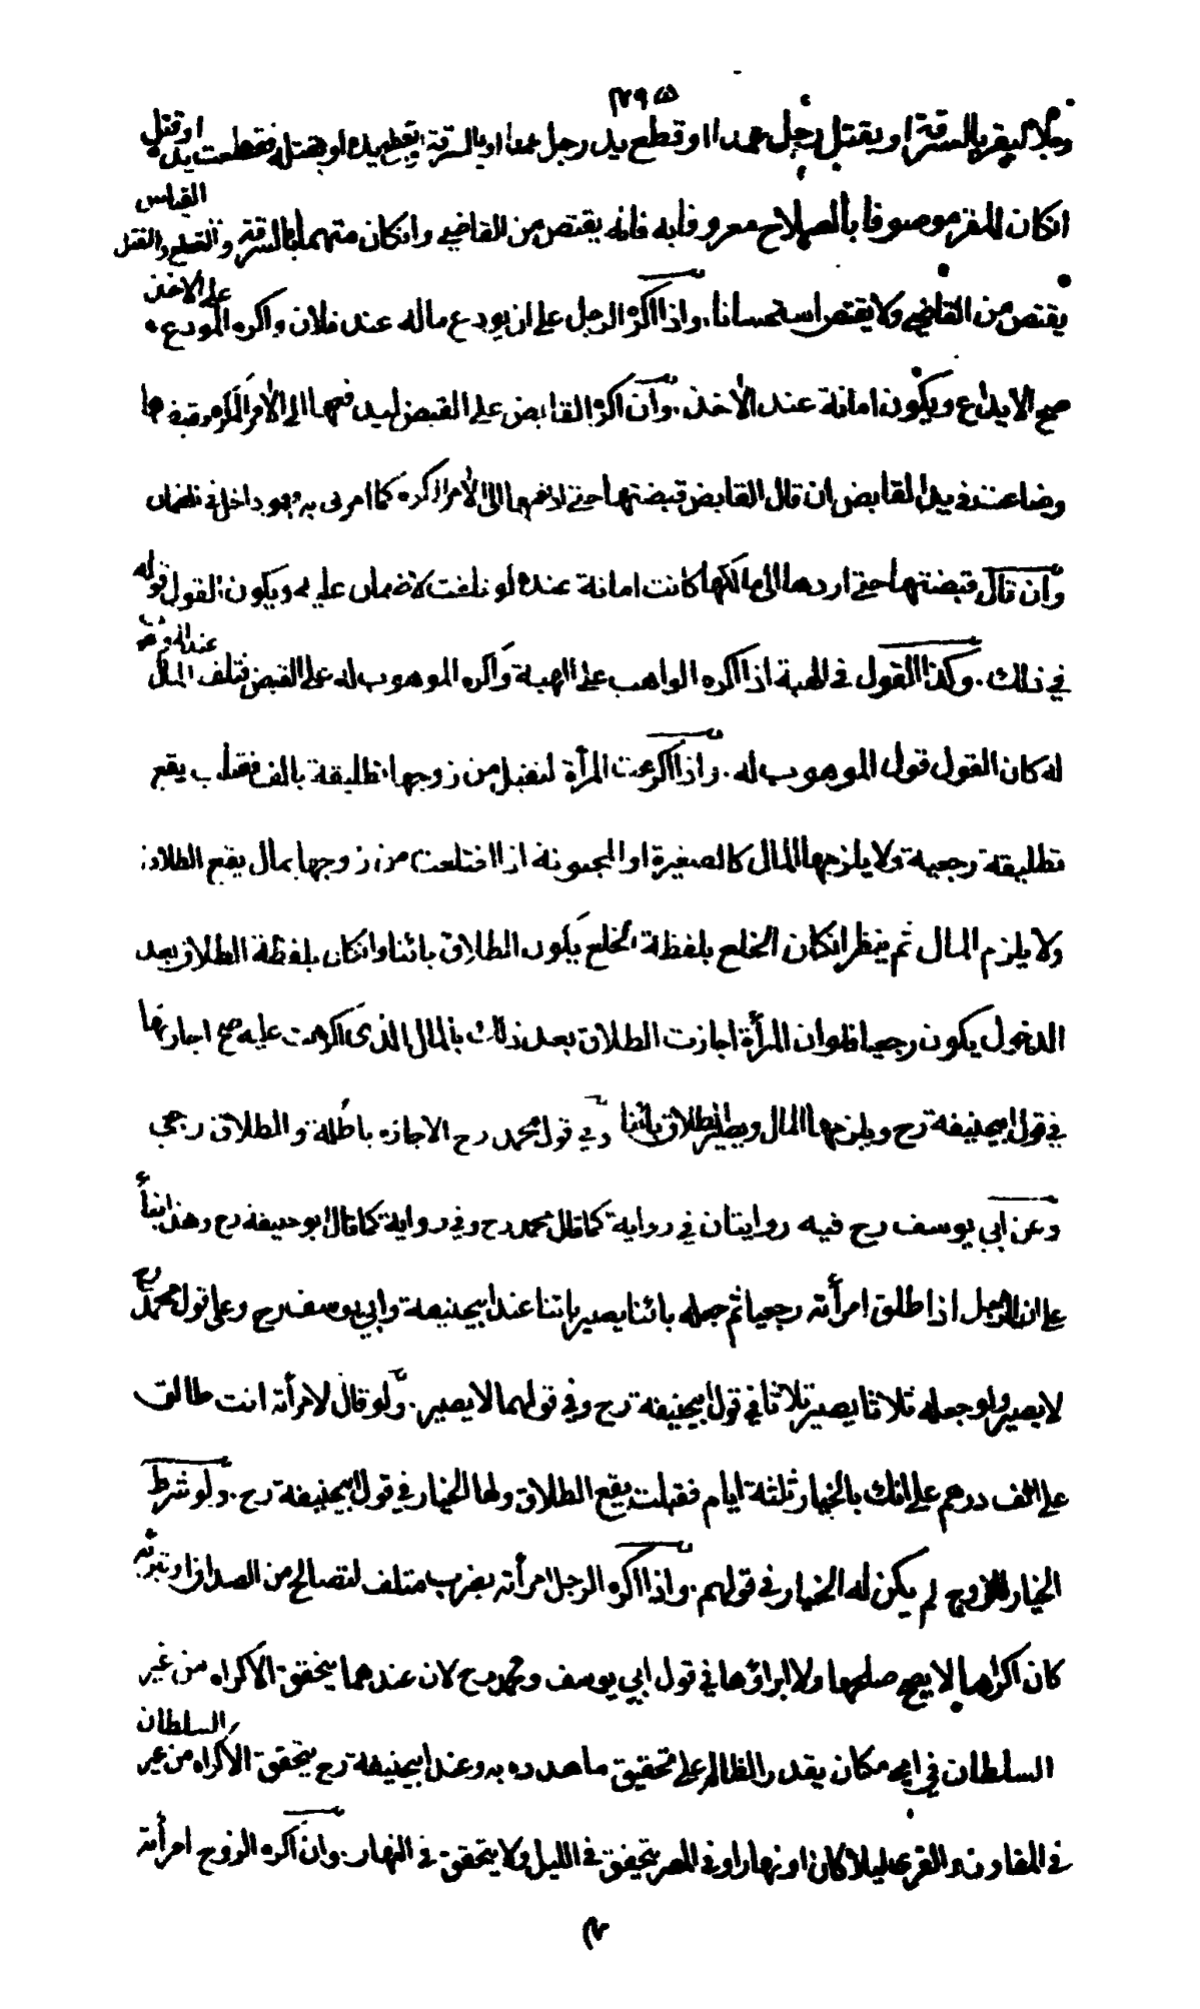 ٢٩٥
رجلا ليقر بالسرقة او بقتل رجل عمدا او قطع يد رجل عمدا او بالسرقة ليقطع يده او يقتله فقطعت يده او قتل
انكان المقر موصوفا بالصلاح معروفا به فانه يقتص من القاضي وانكان متهما بالسرقة والقطع والقتل القياس
يقتص من القاضي ولا يقتص استحسانا، واذا اكره الرجل على ان يودع ماله عند فلان واكره المودع على الاخذ
صح الايداع ويكون امانة عند الآخذ. وان اكره القابض على القبض ليدفعها الى الآمر المكره وقبضها
وضاعت في يد القابض ان قال القابض قبضتها حتى ادفعها الى الآمر المكره كما امرني به فهو داخل في ضمان
وان قال قبضتها حتى اردها الى مالكها كانت امانة عنده لو تلفت لا ضمان عليه ويكون القول قوله
في ذلك. وكذا القول في الهبة اذا اكره الواهب على الهبة واكره الموهوب له على القبض فتلف المال عنده
له كان القول قول الموهوب له. واذا اكرهت المرأة لتقبل من زوجها تطليقة بالف فقبلت يقع
تطليقة رجعية ولا يلزمها المال كالصغيرة او المجنونة اذا اختلعت من زوجها بمال يقع الطلاق
ولا يلزم المال ثم ينظر انكان الخلع بلفظة الخلع يكون الطلاق بائنا وانكان بلفظة الطلاق بعد
الدخول يكون رجعيا فلو ان المرأة اجازت الطلاق بعد ذلك بالمال الذي اكرهت عليه صح اجازتها
في قول ابيحنيفة رح ويلزمها المال ويصير الطلاق بائنا وفي قول محمد رح الاجازه باطلة والطلاق رجعي
وعن ابي يوسف رح فيه روايتان في رواية كما قال محمد رح وفي رواية كما قال ابو حنيفة رح وهذا بناء
على ان الرجل اذا طلق امرأته رجعيا ثم جعله بائنا يصير بائنا عند ابيحنيفة وابي يوسف رح وعلى قول محمد رح
لا يصير ولو جعله ثلاثا يصير ثلاثا في قول ابيحنيفة رح وفي قولهما لا يصير. ولو قال لامرأته انت طالق
على الف درهم على انك بالخيار ثلثة ايام فقبلت يقع الطلاق ولها الخيار في قول ابيحنيفة رح. ولو شرط
الخيار للزوج لم يكن له الخيار في قولهم. واذا اكره الرجل امرأته بضرب متلف لتصالح من الصداق او تبرئه
كان اكراها لا يصح صلحها ولا ابراؤها في قول ابي يوسف ومحمد رح لان عندهما يتحقق الاكراه من غير
السلطان في اي مكان يقدر الظالم على تحقيق ما هدده به وعند ابيحنيفة رح يتحقق الاكراه من غير السلطان
في المفاوز والقرى ليلا كان او نهارا وفي المصر يتحقق في الليل ولا يتحقق في النهار. وان اكره الزوج امرأته